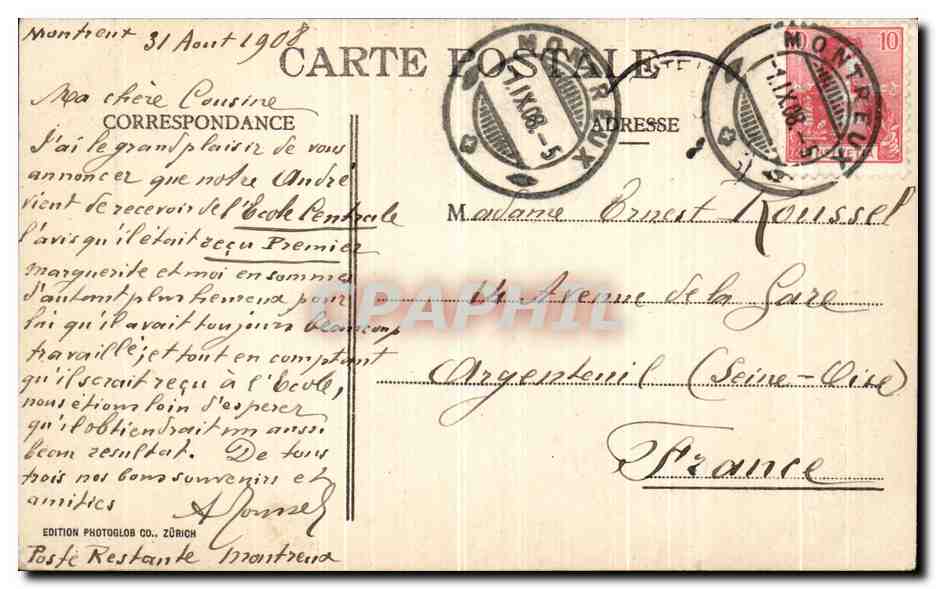 Montreux 31 Aout 1908
CARTE POSTALE
MONTREUX
1.IX.08.-5
MONTREUX
1.IX.08.-5
10
10
HELVETIA
Ma chère Cousine
CORRESPONDANCE
J'ai le grand plaisir de vous
annoncer que notre André
vient de recevoir de l'Ecole Centrale
l'avis qu'il était reçu Premier
Marguerite et moi en sommes
d'autant plus heureux pour
lui qu'il avait toujours beaucoup
travaillé, et tout en comptant
qu'il serait reçu à l'Ecole,
nous étions loin d'espérer
qu'il obtiendrait un aussi
beau resultat. De tous
trois nos bons souvenirs et
amitiés
EDITION PHOTOGLOB CO., ZÜRICH
Poste Restante Montreux
ADRESSE
Madame Ernest Roussel
14 Avenue de la Gare
Argenteuil (Seine-Oise)
France
CPAPHIL